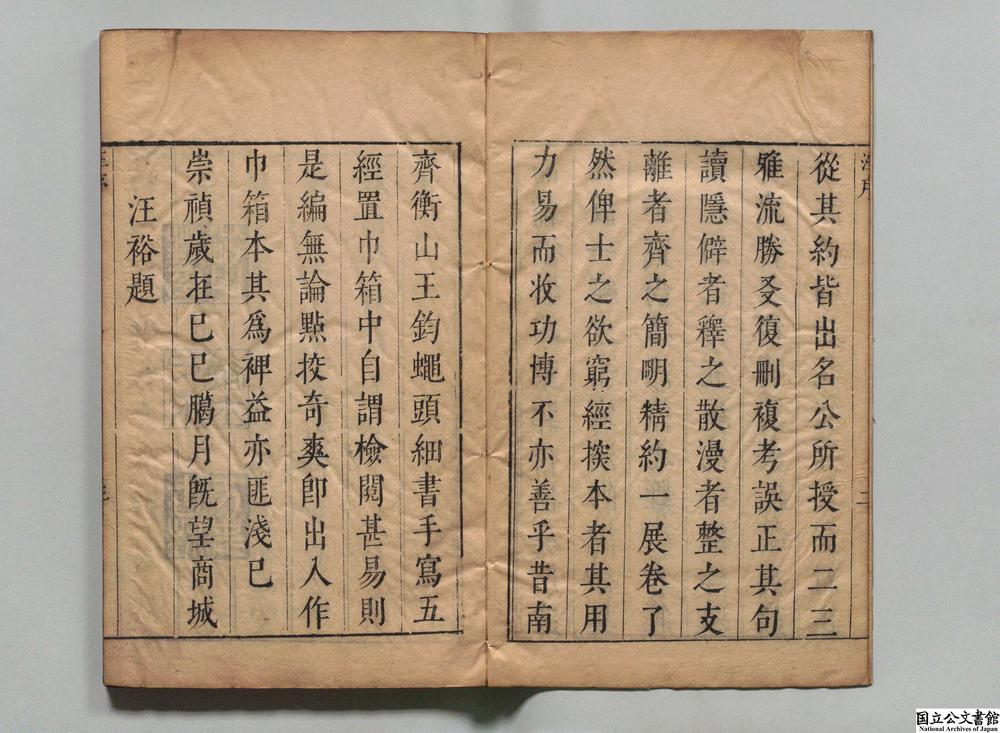 從其約皆出名公所授而二三
雅流勝叐復刪複考誤正其句
讀隱僻者釋之散漫者整之支
離者齊之簡明精約一展卷了
然俾士之欲窮經揆本者其用
力易而收功博不亦善乎昔南
齊衡山王鈞蠅頭細書手寫五
經置巾箱中自謂檢閱甚易則
是編無論點挍奇爽卽出入作
巾箱本其爲裨益亦匪淺已
崇禎歲在巳巳臈月旣望商城
汪裕題
国立公文書館
National Archives of Japan